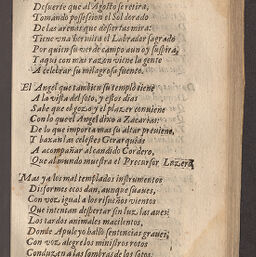 Desuerte que al Agosto se retira,
Tomando possession el Sol dorado
De las arenas que desiertas mira:
Tiene una hermita el Labrador sagrado
Por quien su verde campo aun oy suspira,
Y aqui con mas razon viene la gente
A celebrar su milagrosa fuente.
El Angel que tambien su templo tiene
A la vista del soto, y estos dias
Sabe que el gozo y el plazer conviene
Con lo que el Angel dixo a Zacarias:
De lo que importa mas su altar previene,
Y baxan las celestes Gerarquias
A acompañar al candido Cordero,
Que al mundo muestra el Precursor Lucero,
Mas ya los mal templados instrumentos
Disformes ecos dan, aunque suaves,
Con voz igual a los risueños vientos
Que intentan despertar sin luz las aves:
Los tardos animales macilentos,
Donde Apuleyo hallò sentencias graves,
Con voz alegre los ministros rotos
Conduzan a las sombras de los sotos.